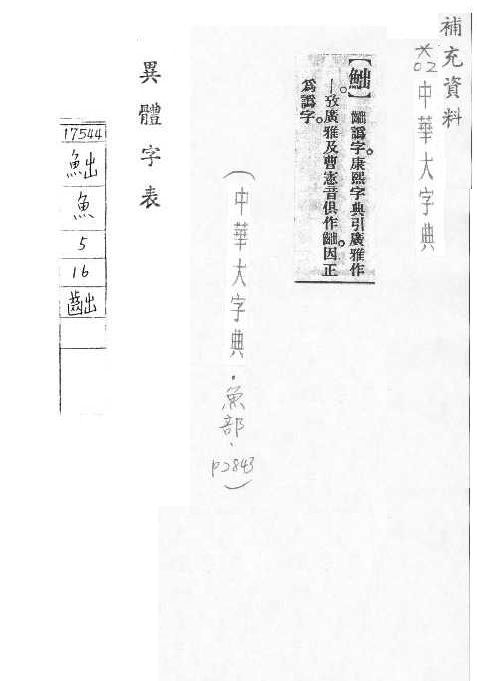 補充資料
02 中華大字典
【䖦】 齣譌字。康熙字典引廣雅作
—。攷廣雅及曹憲音俱作齣。因正
爲譌字。
(中華大字典·魚部·p2843)
異體字表
17544
魚
5
16
齣